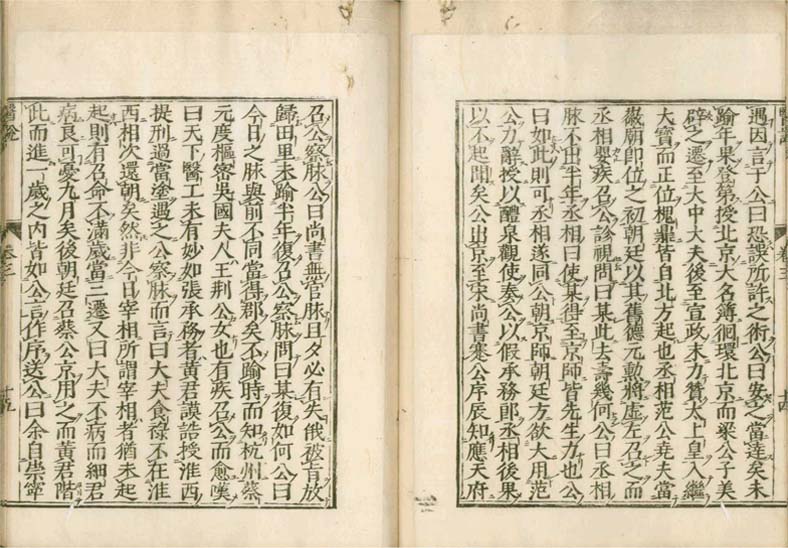 遇因言于公曰恐誤所許之術公曰安之當達矣未
踰年果登第授北京大名簿徊環北京而梁公子美
辟之遷至大中大夫後至宣政末力贊太上皇入繼
大寳而正位槐鼎皆自北方起也丞相范公堯夫當
徽廟卽位之初朝廷以其舊德元勲將虛左召之而
丞相嬰疾召公診視問曰某此去壽幾何公曰丞相
脉不出半年丞相曰使某得至京師皆先生力也公
曰如此則可丞相遂同公朝京師朝廷方欲大用范
公力辭授以醴泉觀使奏公以假承務郎丞相後果
以不起聞矣公出京至宋尚書蹇公序辰知應天府
召公察脉公曰尚書無官脉旦夕必有失俄被旨放
歸田里未踰半年復召公察脉問曰某復如何公曰
今日之脉與前不同當得郡矣不踰時而知杭州蔡
元度樞密吳國夫人王荆公女也有疾召公而愈嘆
曰天下醫工未有妙如張承務者黃君謨誥授淮西
提刑過當塗遇之公察脉而言曰大夫食祿不在淮
西相次還朝矣然非今日宰相所謂宰相者猶未起
起則有召命不滿歲當三遷又曰大夫不病而細君
病良可憂九月矣後朝廷召蔡公京用之而黃君階
此而進一歲之内皆如公言作序送公曰余自崇寧
醫說
卷三
十五